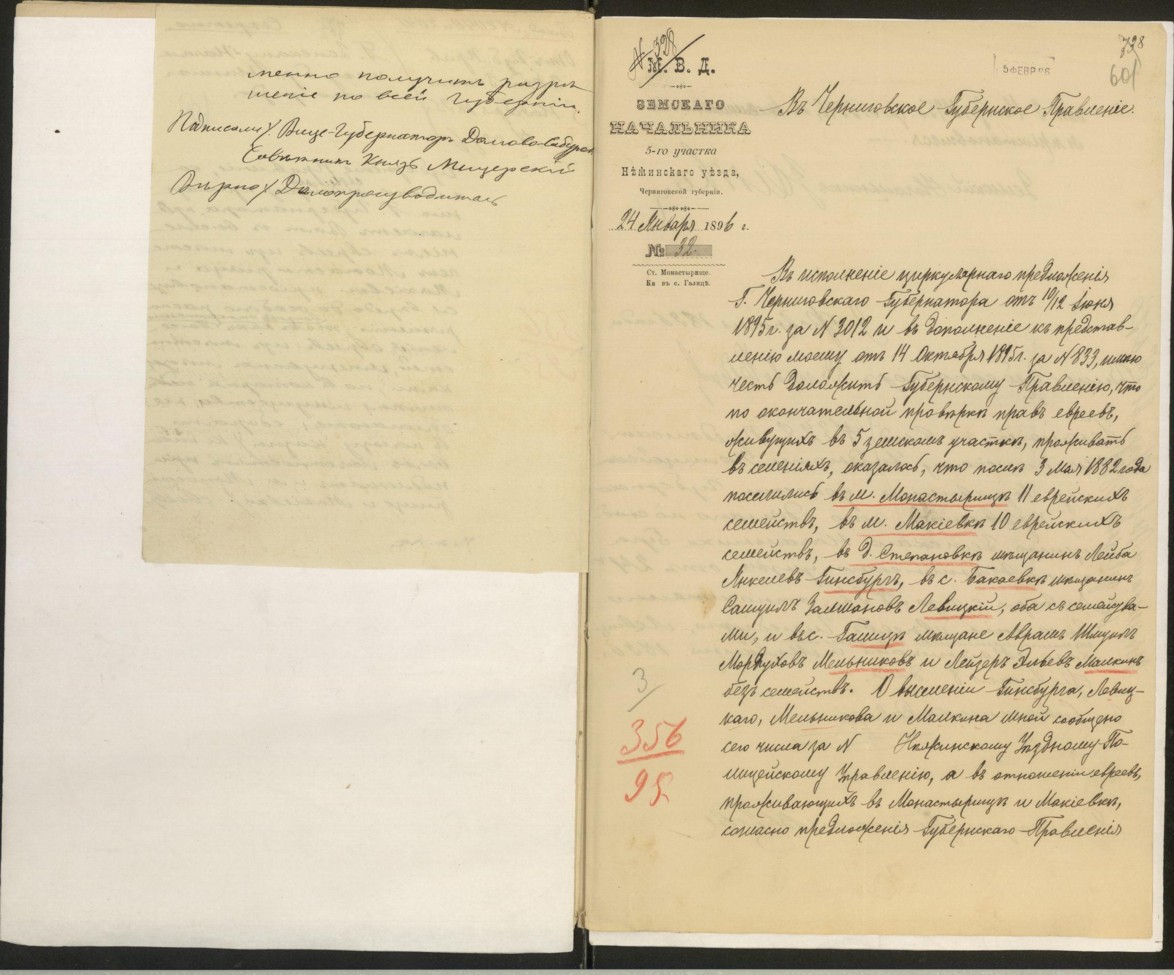 менно получить разрѣ
шеніе по всей Губерніи.
Подписали) Вице-Губернаторъ Долгово-Сабуровъ
Совѣтникъ Князь Мещерскій
Вѣрно) Дѣлопроизводитель
№ 328
М. В. Д.
ЗЕМСКАГО
НАЧАЛЬНИКА
5-го участка
Нѣжинскаго уѣзда,
Черниговской губерніи.
24 Января 1896 г.
№ 32.
Ст. Монастырище.
Кв въ с. Галицѣ.
5 ФЕВР 96
738
601
Въ Черниговское Губернское Правленіе.
Въ исполненіе циркулярнаго предложенія
Г. Черниговскаго Губернатора отъ 10/12 Іюня
1895 г. за N 3012 и въ дополненіе къ представ-
ленію моему отъ 14 Октября 1895 г. за N 833, имѣю
честь доложить Губернскому Правленію, что
по окончательной провѣркѣ правъ евреевъ,
живущихъ въ 5 земскомъ участкѣ, проживать
въ селеніяхъ, оказалось, что послѣ 3 Мая 1882 года
поселились въ м. Монастырищѣ 11 еврейскихъ
семействъ, въ м. Макіевкѣ 10 еврейскихъ
семействъ, въ д. Степановкѣ мѣщанинъ Лейба
Янкелевъ Гинсбургъ, въ с. Бакаевкѣ мѣщанинъ
Залмановъ Левицкій, оба съ семейства-
ми, и въ с. Галицѣ мѣщане Абрамъ Шмуилъ
Мордуховъ Мельниковъ и Лейзеръ Эльевъ Малкинъ
безъ семействъ. О выселеніи Гинсбурга, Левиц-
каго, Мельникова и Малкина мной сообщено
сего числа за N Нѣжинскому Уѣздному По-
лицейскому Управленію, а въ отношеніи евреевъ,
проживающихъ въ Монастырищѣ и Макіевкѣ,
согласно предложенія Губернскаго Правленія
3/
356
95